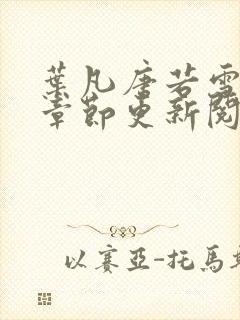 葉凡唐若雪
章節更新閱
以賽亞-托馬